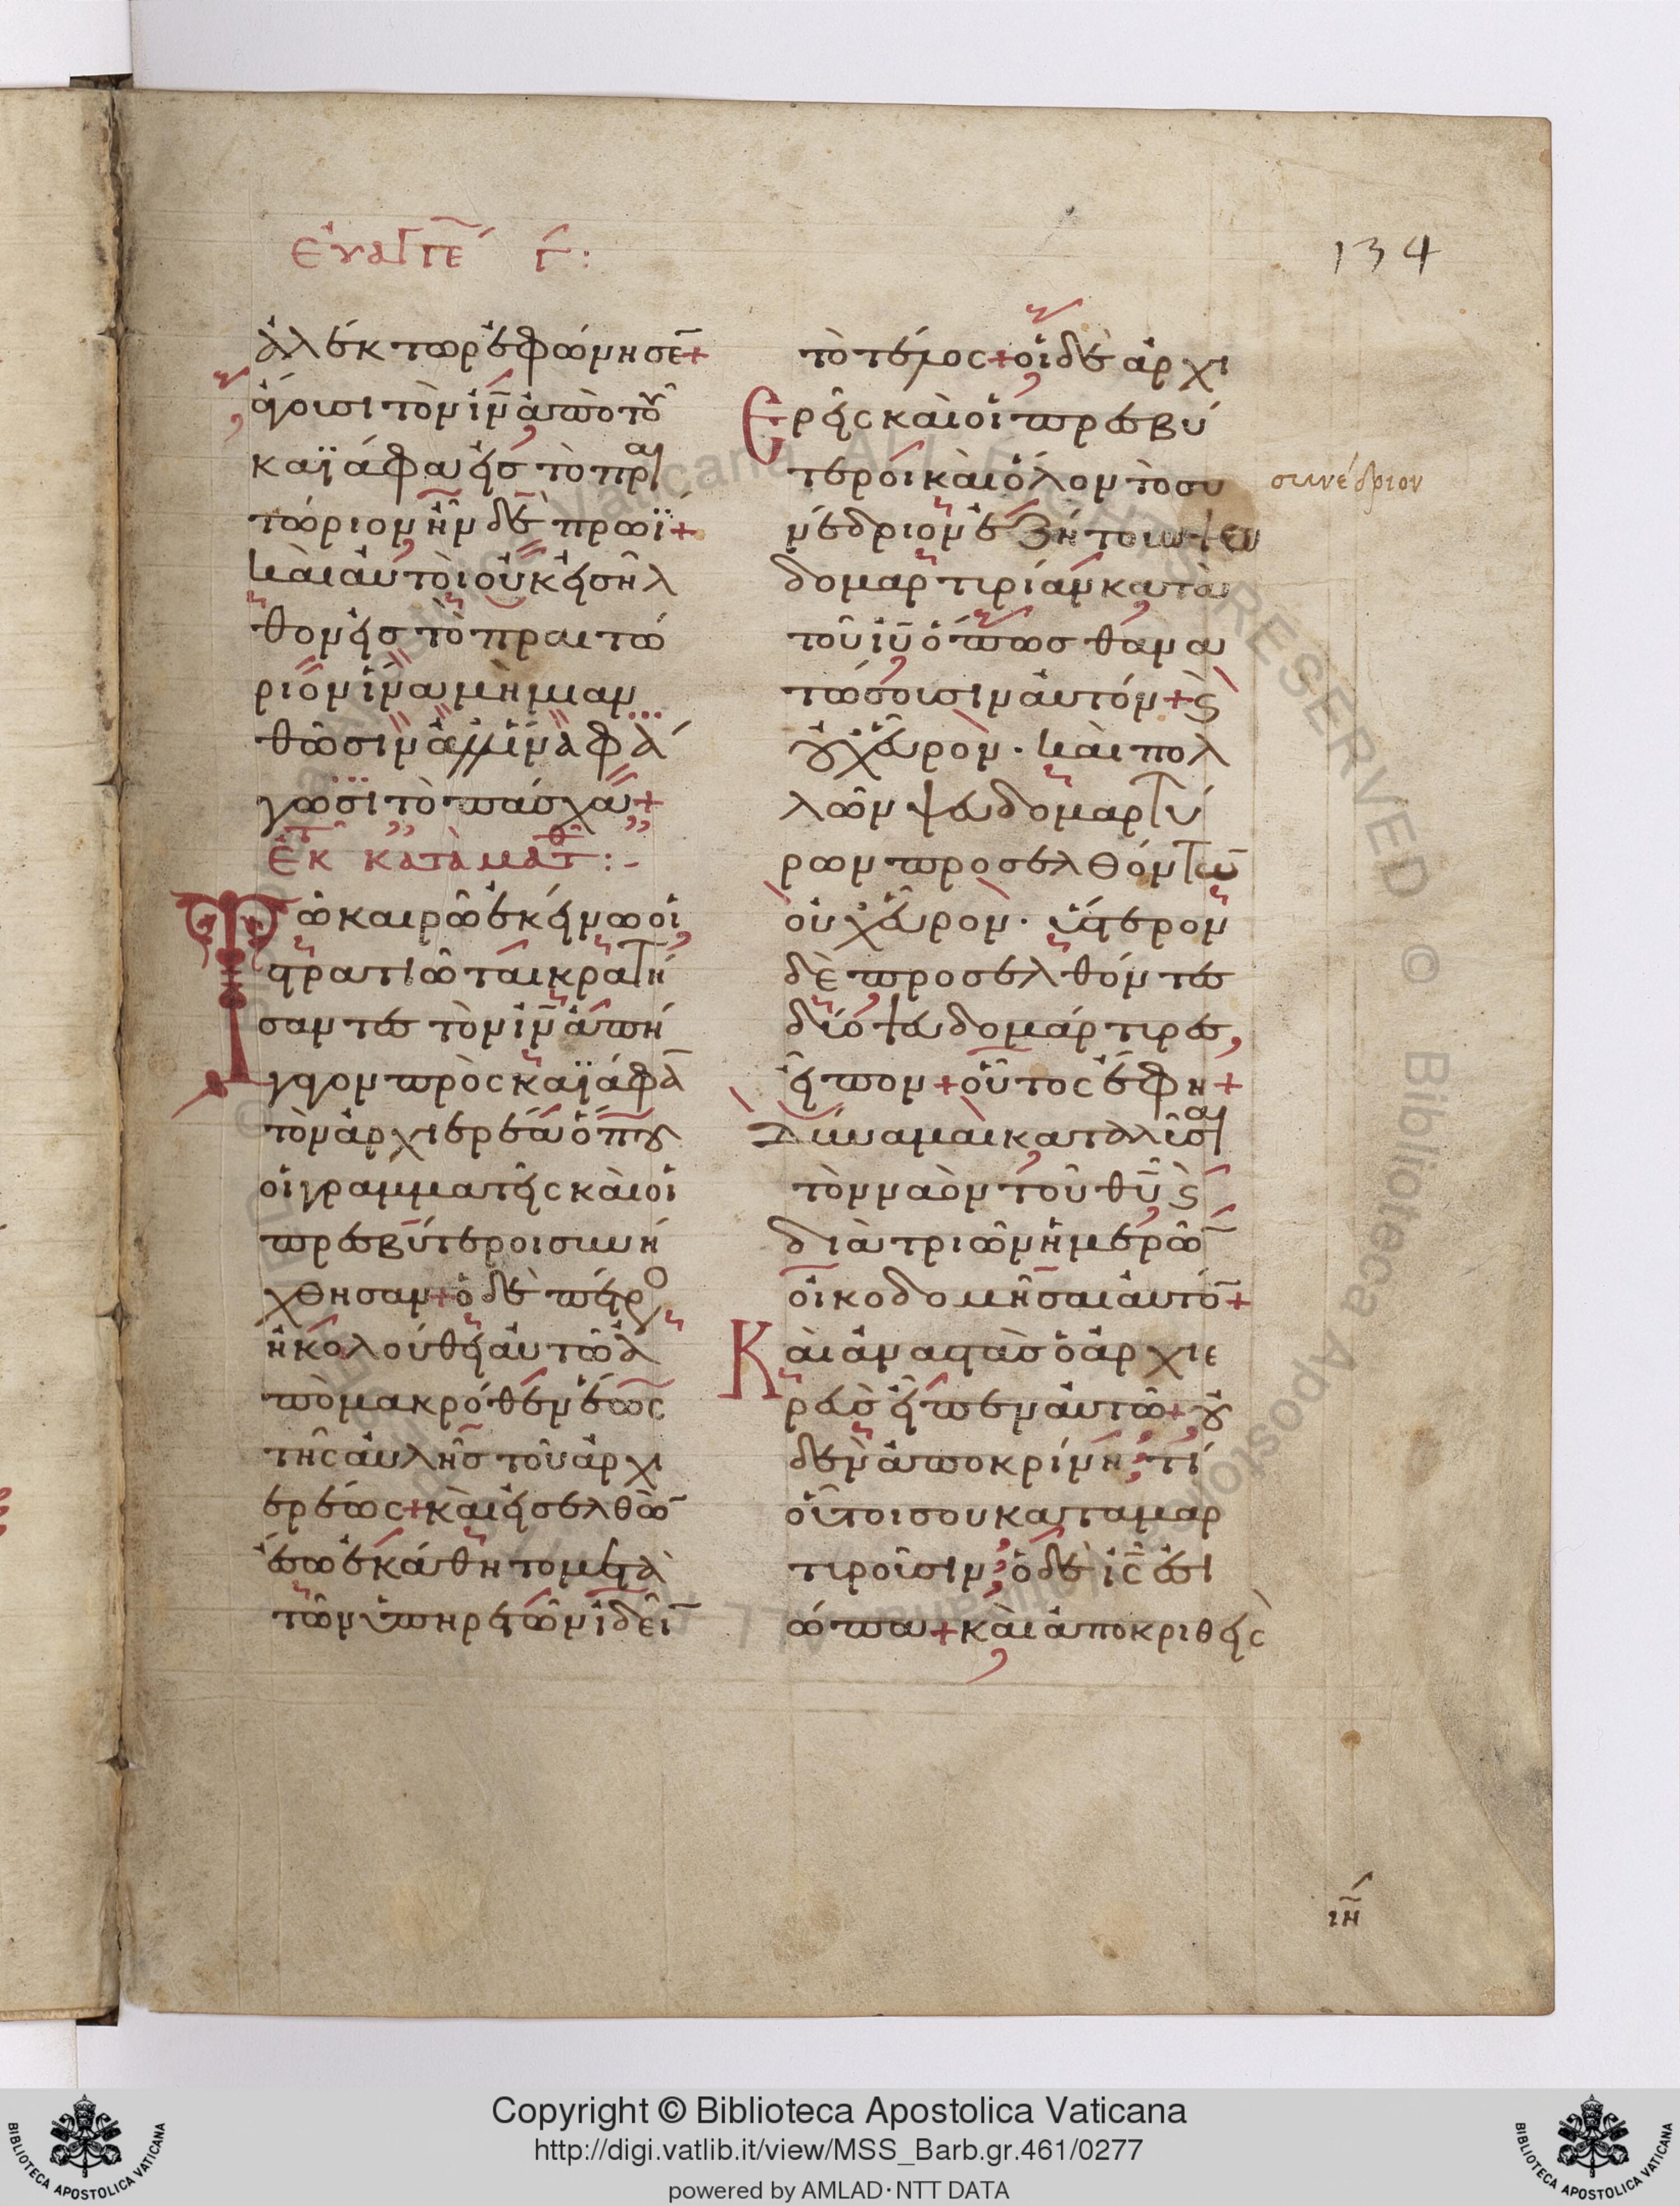 εὐαγγέ γ:
134
ἀλέκτωρ ἐφώνησε̅+
ἄγουσι τὸν ἰν̅ ἀπὸ τοῦ
καϊάφα εἰς τὸ πραι
τώριον ἦν δὲ πρωΐ+
καὶ αὐτοὶ οὐκ εἰσῆλ
θον εἰς τὸ πραιτώ
ριον ἵνα μὴ μιαν
θῶσιν ἀλλ' ἵνα φά
γωσι τὸ πάσχα+
ἐκ τ κατὰ ματθ:-
Τῶ καιρῶ ἐκείνω οἱ
στρατιῶται κρατή
σαντες τὸν ἰν̅ ἀπή
γαγον πρὸς καϊάφα̅
τὸν ἀρχιερέα ὅπου
οἱ γραμματεῖς καὶ οἱ
πρεσβύτεροι συνή
χθησαν+ ὁ δὲ πέτρο
ἠκολούθει αὐτῶ ἀ
πὸ μακρόθεν ἕως
τῆς αὐλῆς τοῦ ἀρχι
ερέως+ καὶ εἰσελθὼ̅
ἔσω ἐκάθητο μετὰ
τῶν ὑπηρετῶν ἰδεῖ̅
τὸ τέλος+ οἱ δὲ ἀρχι
Ερεῖς καὶ οἱ πρεσβύ
τεροι καὶ ὅλον τὸ συ
νέδριον ἐζήτουν ψευ
συνέδριον
δομαρτιρίαν κατὰ
τοῦ ἰυ̅ ὅπως θανα
τώσουσιν αὐτόν+ ϗ
οὐχ εὗρον· καὶ πολ
λῶν ψευδομαρτύ
ρων προσελθόντω̅
οὐχ εὗρον· ὕστερον
δὲ προσελθόντες
δύο ψευδομάρτιρες,
εἶπον+ οὗτος ἔφη+
Δύναμαι καταλῦσαι
τὸν ναὸν τοῦ θυ̅ ϗ
διὰ τριῶν ἡμερῶ̅
οἰκοδομῆσαι αὐτό̅+
Καὶ ἀναστὰς ὁ ἀρχιε
ρεὺς εἶπεν αὐτῶ+ οὐ
δὲν ἀποκρίνη; τί
οὗτοι σου καταμαρ
τιροῦσιν; ὁ δὲ ἰς̅ ἐσι
ώπα+ καὶ ἀποκριθεὶς
ιη
Copyright © Biblioteca Apostolica Vaticana
http://digi.vatlib.it/view/MSS_Barb.gr.461/0277
powered by AMLAD·NTT DATA
BIBLIOTECA APOSTOLICA VATICANA
BIBLIOTECA APOSTOLICA VATICANA